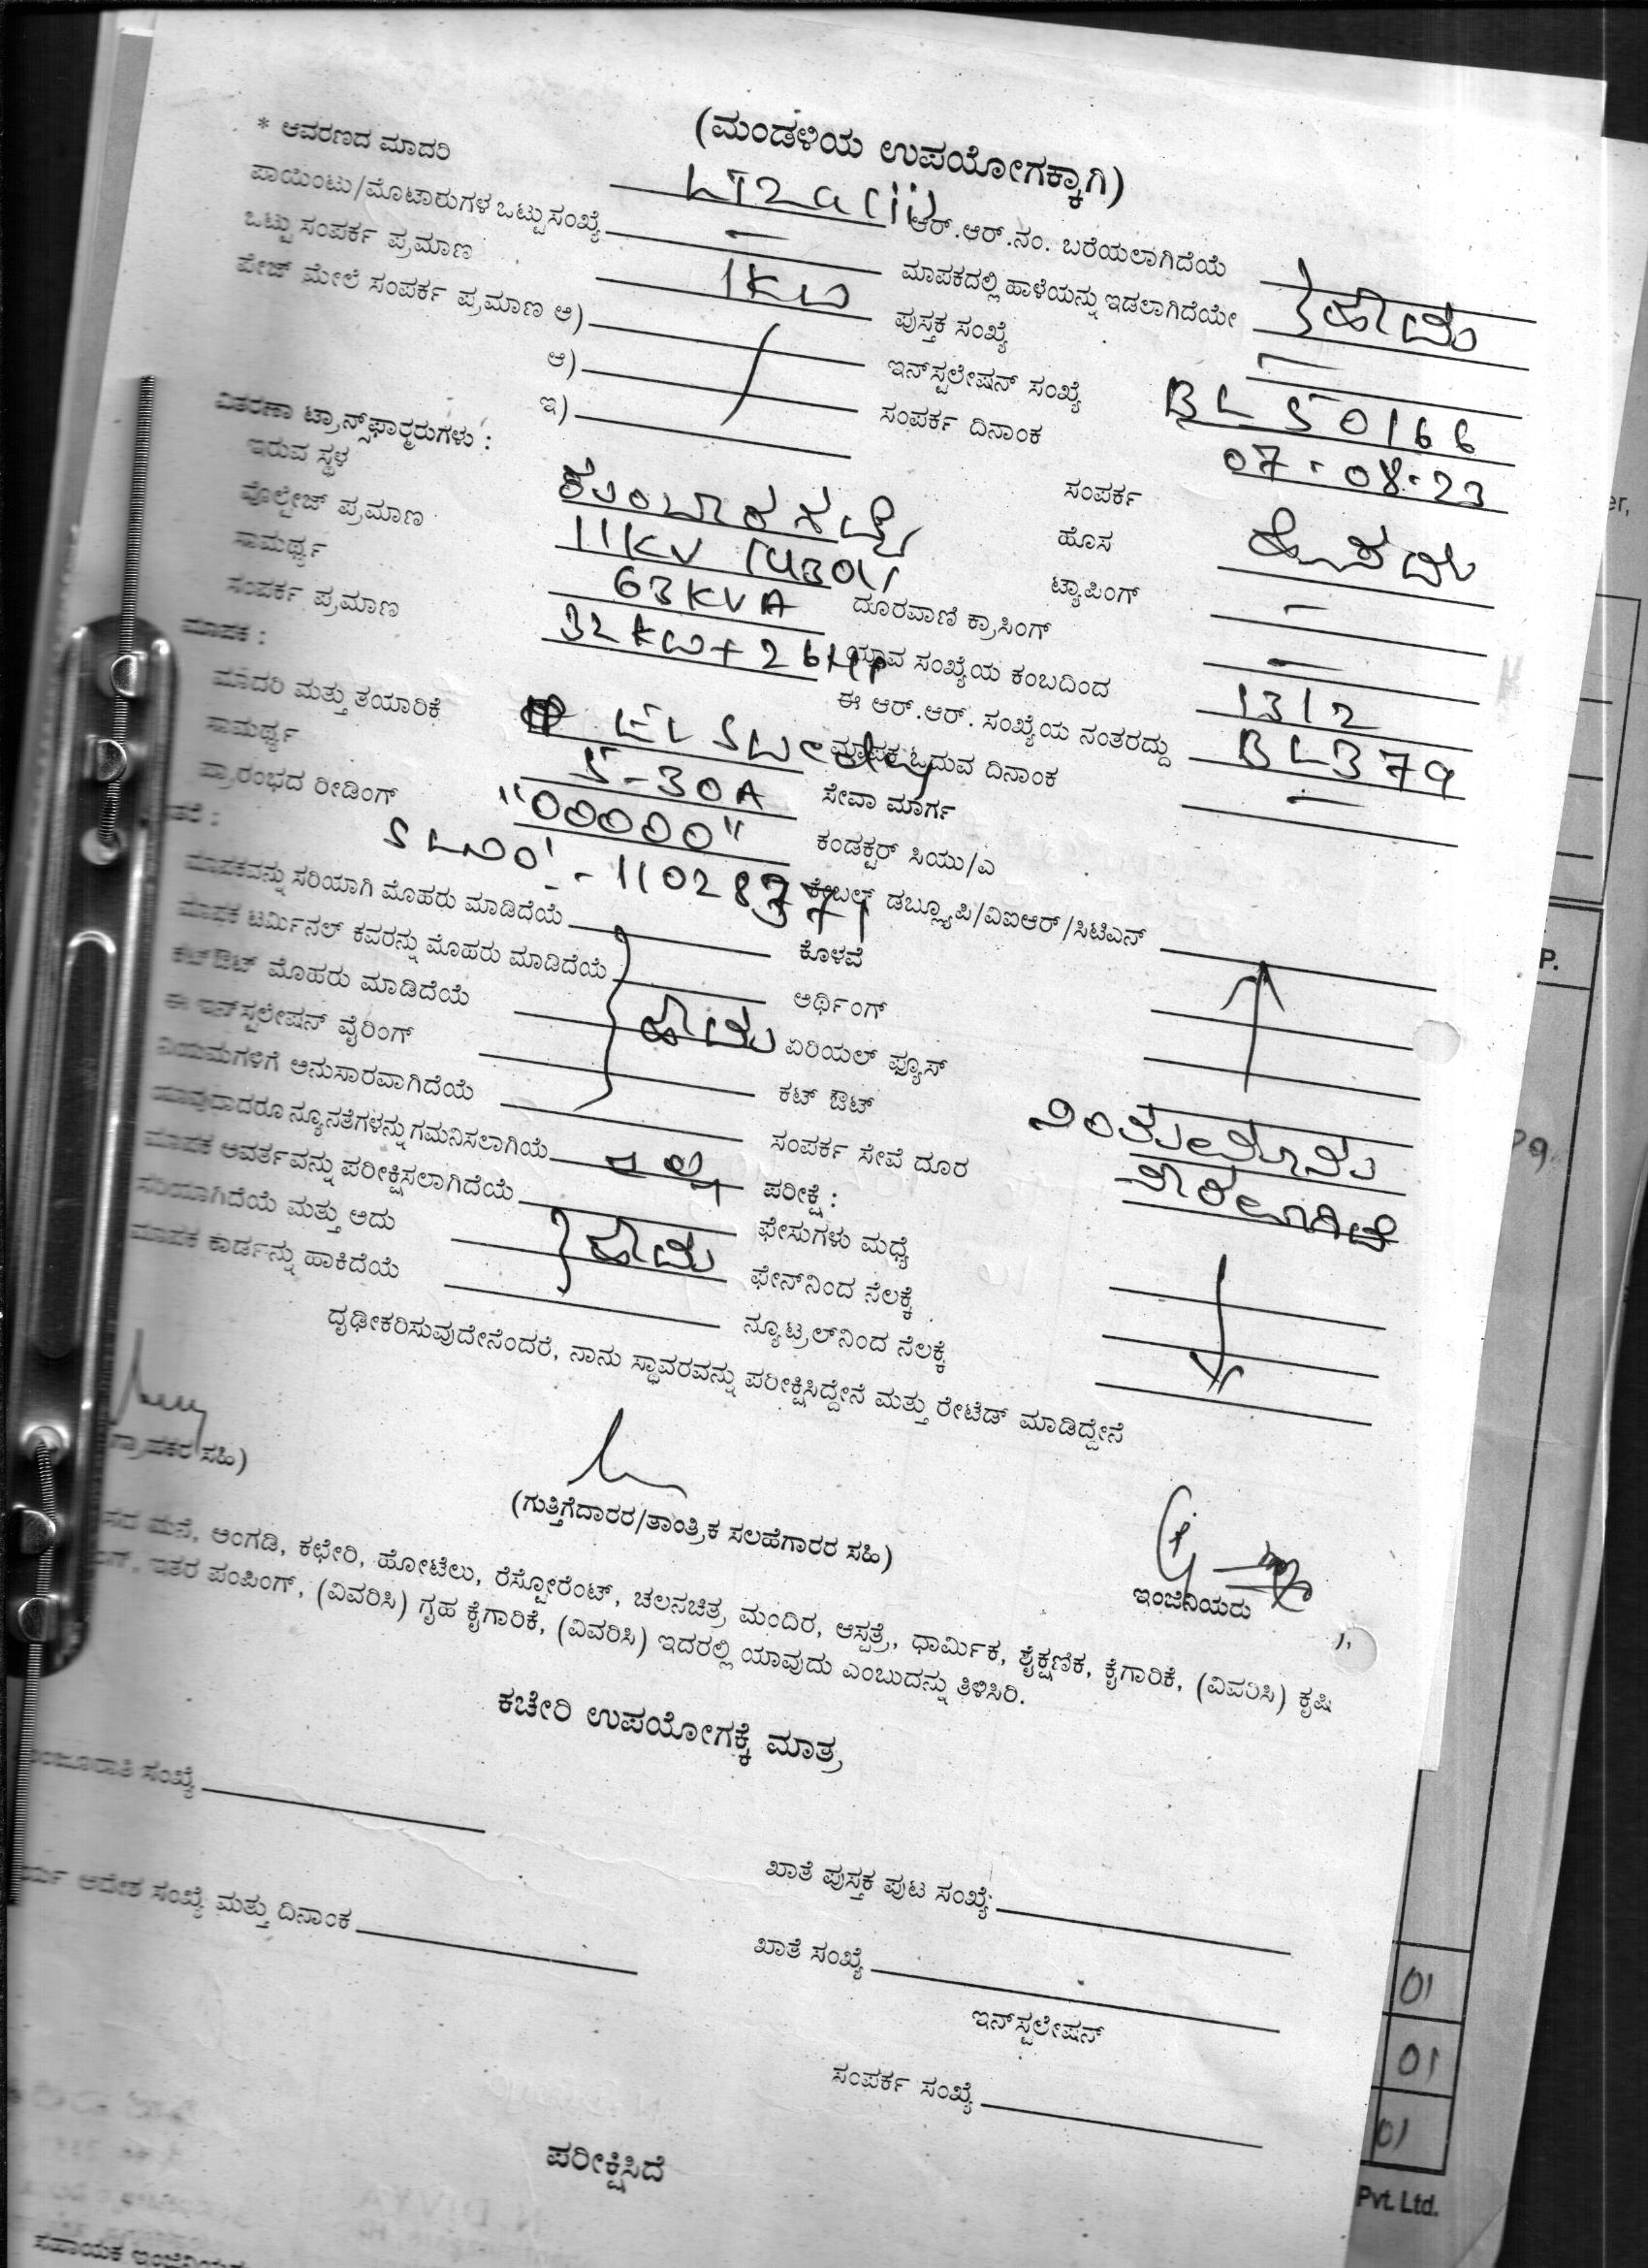 (ಮಂಡಳಿಯ ಉಪಯೋಗಕ್ಕಾಗಿ)
* ಆವರಣದ ಮಾದರಿ LT2a(ii) ಆರ್.ಆರ್.ನಂ. ಬರೆಯಲಾಗಿದೆಯೆ
ಪಾಯಿಂಟು/ಮೊಟಾರುಗಳ ಒಟ್ಟು ಸಂಖ್ಯೆ — ಮಾಪಕದಲ್ಲಿ ಹಾಳೆಯನ್ನು ಇಡಲಾಗಿದೆಯೇ } ಹೌದು
ಒಟ್ಟು ಸಂಪರ್ಕ ಪ್ರಮಾಣ 1KW ಪುಸ್ತಕ ಸಂಖ್ಯೆ —
ಪೇಜ್ ಮೇಲೆ ಸಂಪರ್ಕ ಪ್ರಮಾಣ ಅ) ಇನ್‌ಸ್ಟಲೇಷನ್ ಸಂಖ್ಯೆ BL50166
ಆ) ಸಂಪರ್ಕ ದಿನಾಂಕ 07-08-23
ಇ)
ವಿತರಣಾ ಟ್ರಾನ್ಸ್‌ಫಾರ್ಮರುಗಳು : ಸಂಪರ್ಕ
ಇರುವ ಸ್ಥಳ ಹೊಸ
ವೊಲ್ಟೇಜ್ ಪ್ರಮಾಣ 11KV ಟ್ಯಾಪಿಂಗ್ —
ಸಾಮರ್ಥ್ಯ 63KVA ದೂರವಾಣಿ ಕ್ರಾಸಿಂಗ್ —
ಸಂಪರ್ಕ ಪ್ರಮಾಣ 32KW+26HP ಯಾವ ಸಂಖ್ಯೆಯ ಕಂಬದಿಂದ 1312
ಮಾಪಕ : ಈ ಆರ್.ಆರ್. ಸಂಖ್ಯೆಯ ನಂತರದ್ದು BL379
ಮಾದರಿ ಮತ್ತು ತಯಾರಿಕೆ EL Swedy ಮಾಪಕ ಓದುವ ದಿನಾಂಕ —
ಸಾಮರ್ಥ್ಯ 5-30A ಸೇವಾ ಮಾರ್ಗ
ಪ್ರಾರಂಭದ ರೀಡಿಂಗ್ "00000" ಕಂಡಕ್ಟರ್ ಸಿಯು/ಎ
SLNO:- ಕೇಬಲ್ ಡಬ್ಲ್ಯೂಪಿ/ವಿಐಆರ್/ಸಿಟಿಎನ್
ಮಾಪಕವನ್ನು ಸರಿಯಾಗಿ ಮೊಹರು ಮಾಡಿದೆಯೆ ಕೊಳವೆ
ಮಾಪಕ ಟರ್ಮಿನಲ್ ಕವರನ್ನು ಮೊಹರು ಮಾಡಿದೆಯೆ ಅರ್ಥಿಂಗ್
ಕಟ್‌ಔಟ್ ಮೊಹರು ಮಾಡಿದೆಯೆ } ಹೌದು ಏರಿಯಲ್ ಫ್ಯೂಸ್
ಈ ಇನ್‌ಸ್ಟಲೇಷನ್ ವೈರಿಂಗ್ ಕಟ್ ಔಟ್
ನಿಯಮಗಳಿಗೆ ಅನುಸಾರವಾಗಿದೆಯೆ ಸಂಪರ್ಕ ಸೇವೆ ದೂರ
ಯಾವುದಾದರೂ ನ್ಯೂನತೆಗಳನ್ನು ಗಮನಿಸಲಾಗಿಯೆ ಇಲ್ಲ ಪರೀಕ್ಷೆ :
ಮಾಪಕ ಆವರ್ತವನ್ನು ಪರೀಕ್ಷಿಸಲಾಗಿದೆಯೆ ಫೇಸುಗಳು ಮಧ್ಯೆ
ಸರಿಯಾಗಿದೆಯೆ ಮತ್ತು ಅದು } ಹೌದು ಫೇನ್‌ನಿಂದ ನೆಲಕ್ಕೆ
ಮಾಪಕ ಕಾರ್ಡನ್ನು ಹಾಕಿದೆಯೆ ನ್ಯೂಟ್ರಲ್‌ನಿಂದ ನೆಲಕ್ಕೆ
ದೃಢೀಕರಿಸುವುದೇನೆಂದರೆ, ನಾನು ಸ್ಥಾವರವನ್ನು ಪರೀಕ್ಷಿಸಿದ್ದೇನೆ ಮತ್ತು ರೇಟೆಡ್ ಮಾಡಿದ್ದೇನೆ
ಸಹಿ)
(ಗುತ್ತಿಗೆದಾರರ/ತಾಂತ್ರಿಕ ಸಲಹೆಗಾರರ ಸಹಿ)
ಇಂಜಿನಿಯರು
ಮನೆ, ಅಂಗಡಿ, ಕಛೇರಿ, ಹೋಟೆಲು, ರೆಸ್ಟೋರೆಂಟ್, ಚಲನಚಿತ್ರ ಮಂದಿರ, ಆಸ್ಪತ್ರೆ, ಧಾರ್ಮಿಕ, ಶೈಕ್ಷಣಿಕ, ಕೈಗಾರಿಕೆ, (ವಿವರಿಸಿ) ಕೃಷಿ
ಇತರ ಪಂಪಿಂಗ್, (ವಿವರಿಸಿ) ಗೃಹ ಕೈಗಾರಿಕೆ, (ವಿವರಿಸಿ) ಇದರಲ್ಲಿ ಯಾವುದು ಎಂಬುದನ್ನು ತಿಳಿಸಿರಿ.
ಕಚೇರಿ ಉಪಯೋಗಕ್ಕೆ ಮಾತ್ರ
ಸಂಖ್ಯೆ
ಖಾತೆ ಪುಸ್ತಕ ಪುಟ ಸಂಖ್ಯೆ
ಆದೇಶ ಸಂಖ್ಯೆ ಮತ್ತು ದಿನಾಂಕ
ಖಾತೆ ಸಂಖ್ಯೆ
ಇನ್‌ಸ್ಟಲೇಷನ್
ಸಂಪರ್ಕ ಸಂಖ್ಯೆ
ಪರೀಕ್ಷಿಸಿದೆ
01
01
01
Pvt. Ltd.